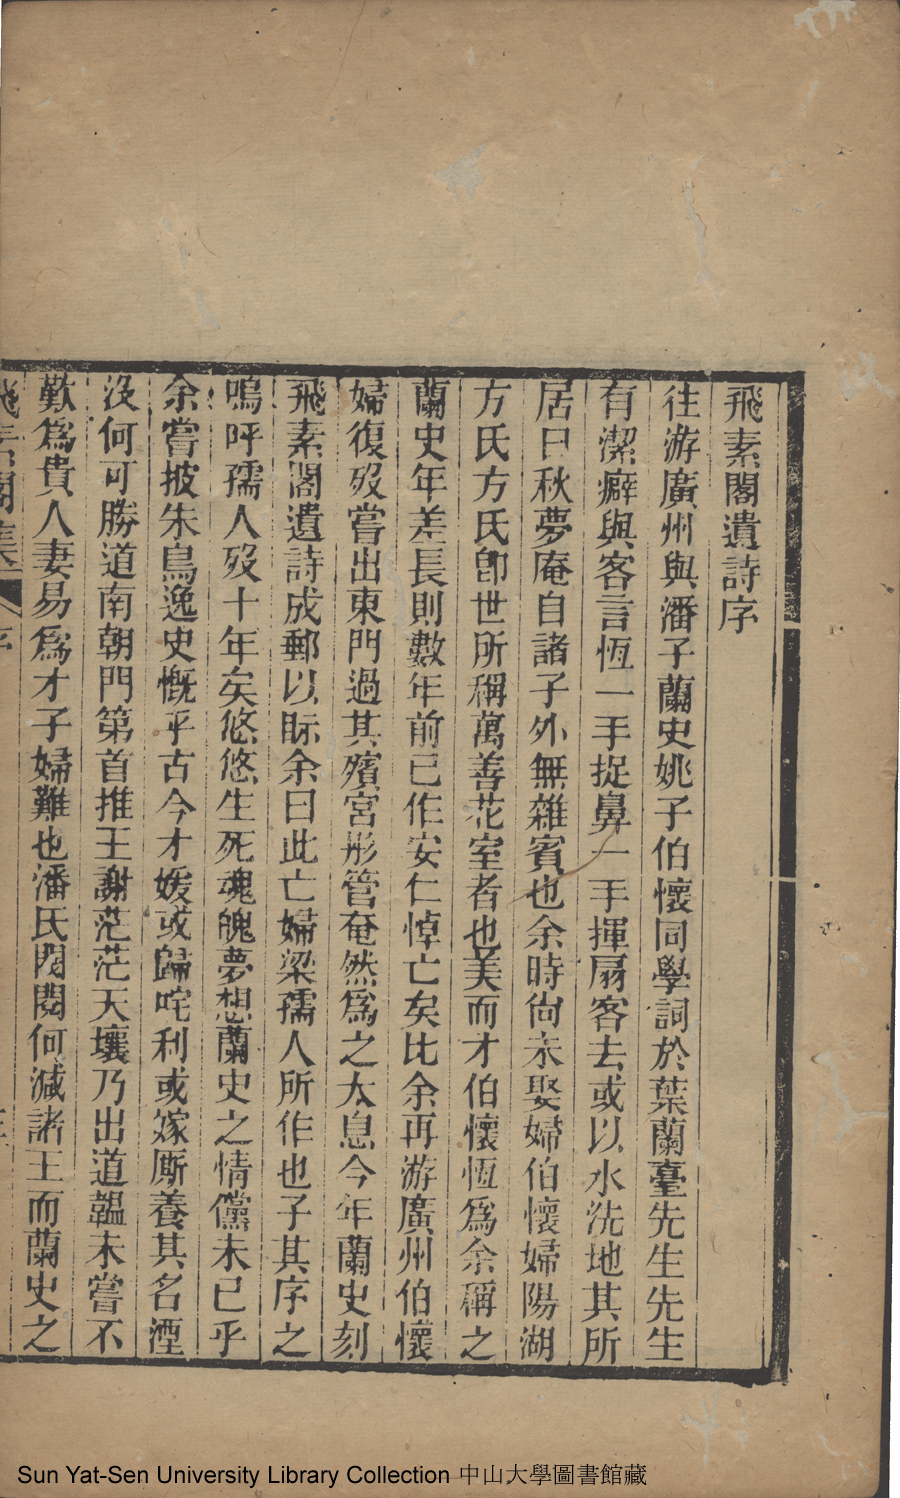 飛素閣遺詩序
往游廣州與潘子蘭史姚子伯懷同學詞於葉蘭臺先生先生
有潔癖與客言恆一手捉鼻一手揮扇客去或以水洗地其所
居曰秋夢庵自諸子外無雜賓也余時尙未娶婦伯懷婦陽湖
方氏方氏卽世所稱萬善花室者也美而才伯懷恆爲余稱之
蘭史年差長則數年前已作安仁悼亡矣比余再游廣州伯懷
婦復歿嘗出東門過其殯宮彤管奄然爲之太息今年蘭史刻
飛素閣遺詩成郵以眎余曰此亡婦梁孺人所作也子其序之
嗚呼孺人歿十年矣悠悠生死魂魄夢想蘭史之情儻未已乎
余嘗披朱鳥逸史慨乎古今才媛或歸咤利或嫁厮養其名湮
沒何可勝道南朝門第首推王謝茫茫天壤乃出道韞未嘗不
歎爲貴人妻易爲才子婦難也潘氏閥閱何減諸王而蘭史之
飛素閣集 序
Sun Yat-Sen University Library Collection 中山大學圖書館藏